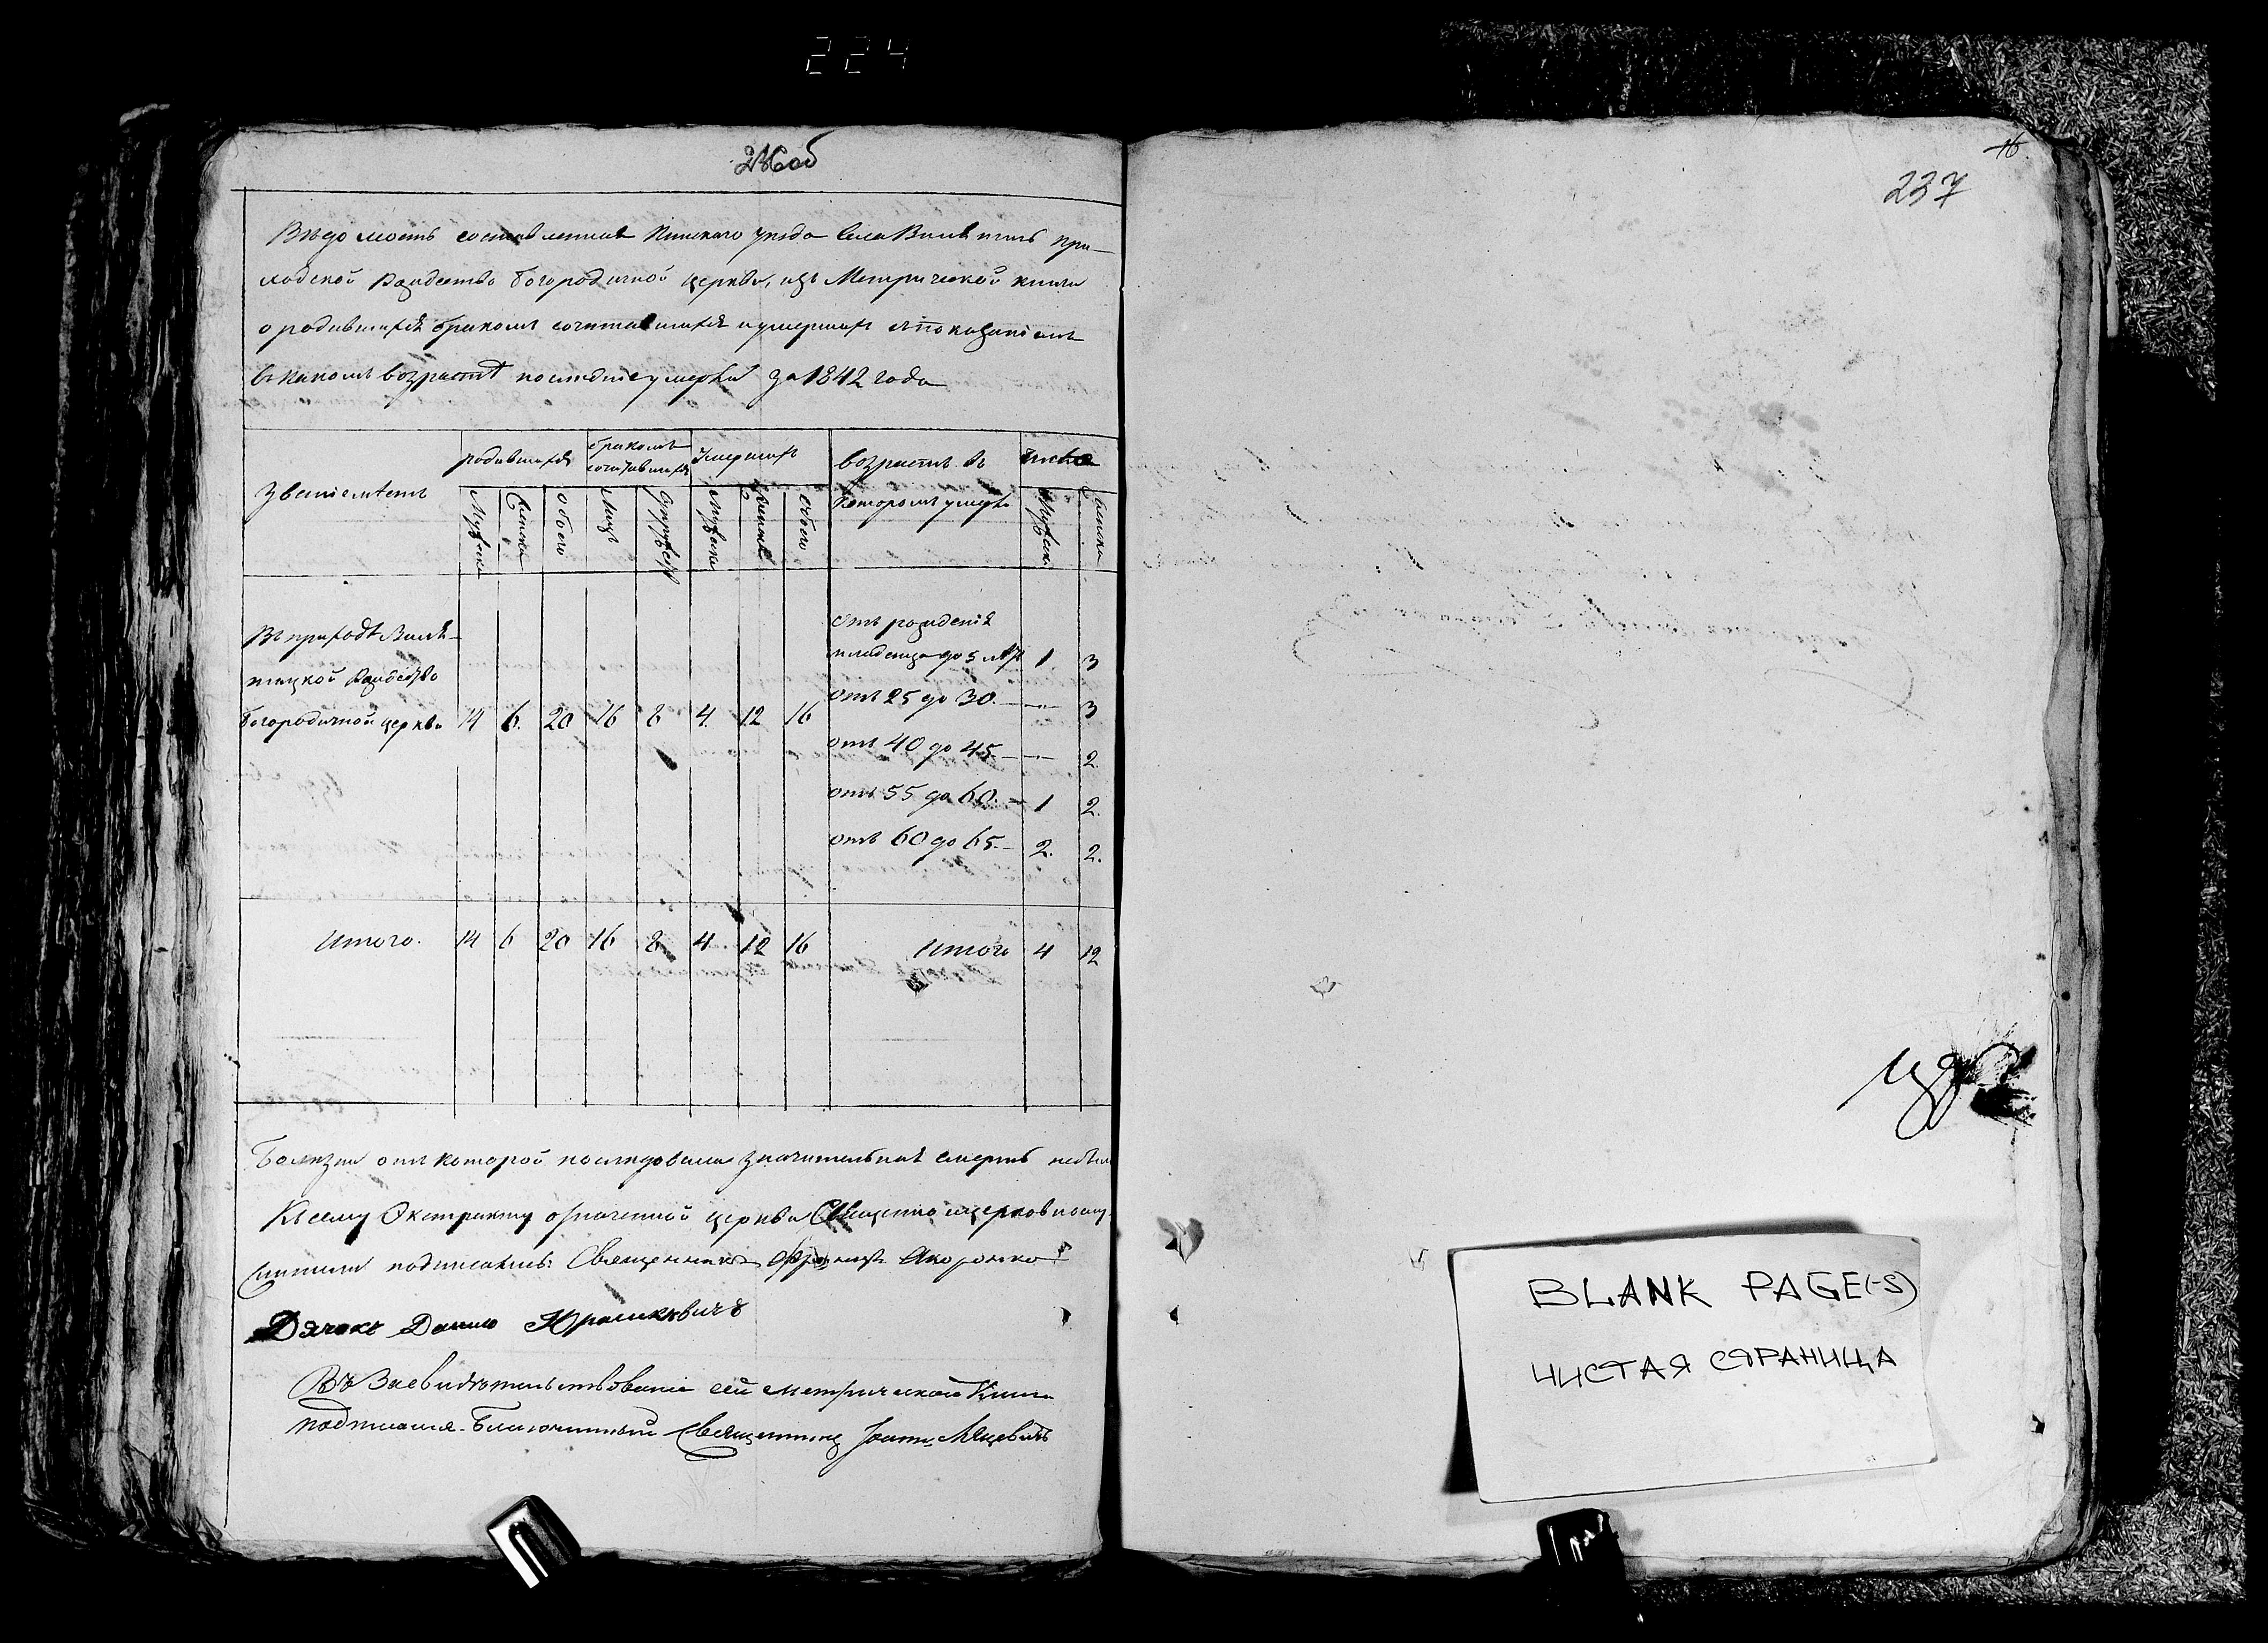 224
236об
Вѣдомость составленная Пинскаго уѣзда села Вилятичь при-
ходской Рождество Богородичной церкви, изъ Метрической книги
о родившихся бракомъ сочитавшихся и умершихъ съ показаніемъ
въ какомъ возрастѣ последніе умерли за 1842 года
родившихся
бракомъ сочитавшихся
умершихъ
возрастъ въ которомъ умерли
число
Званіе мѣстъ
Мужеска
Женска
обоего
Лицъ
Супружествъ
Мужеска
Женска
обоего
Мужеска
Женска
Въ приходѣ Виля-
тицкой Рождество
Богородичной церкви 14 6. 20 16 8 4. 12 16
отъ рожденія
младенца до 5 лѣтъ 1. 3
отъ 25 до 30. — 3
отъ 40 до 45. — 2.
отъ 55 до 60. — 1 2.
отъ 60 до 65. — 2. 2.
Итого. 14 6 20 16 8 4. 12 16 Итого 4 12
Болезни отъ которой последовала значительная смерть небыло
Къ сему Экстракту означенной церкви Священно и церковнослу-
жители подписались: Священникъ
Дячокъ Данило Юрашкевичъ
Въ Засвидѣтельствованіе сей метрической Книги
подписался Благочинный Священникъ Іоаннъ Мацевичъ
16
237
BLANK PAGE(-S)
ЧИСТАЯ СТРАНИЦА